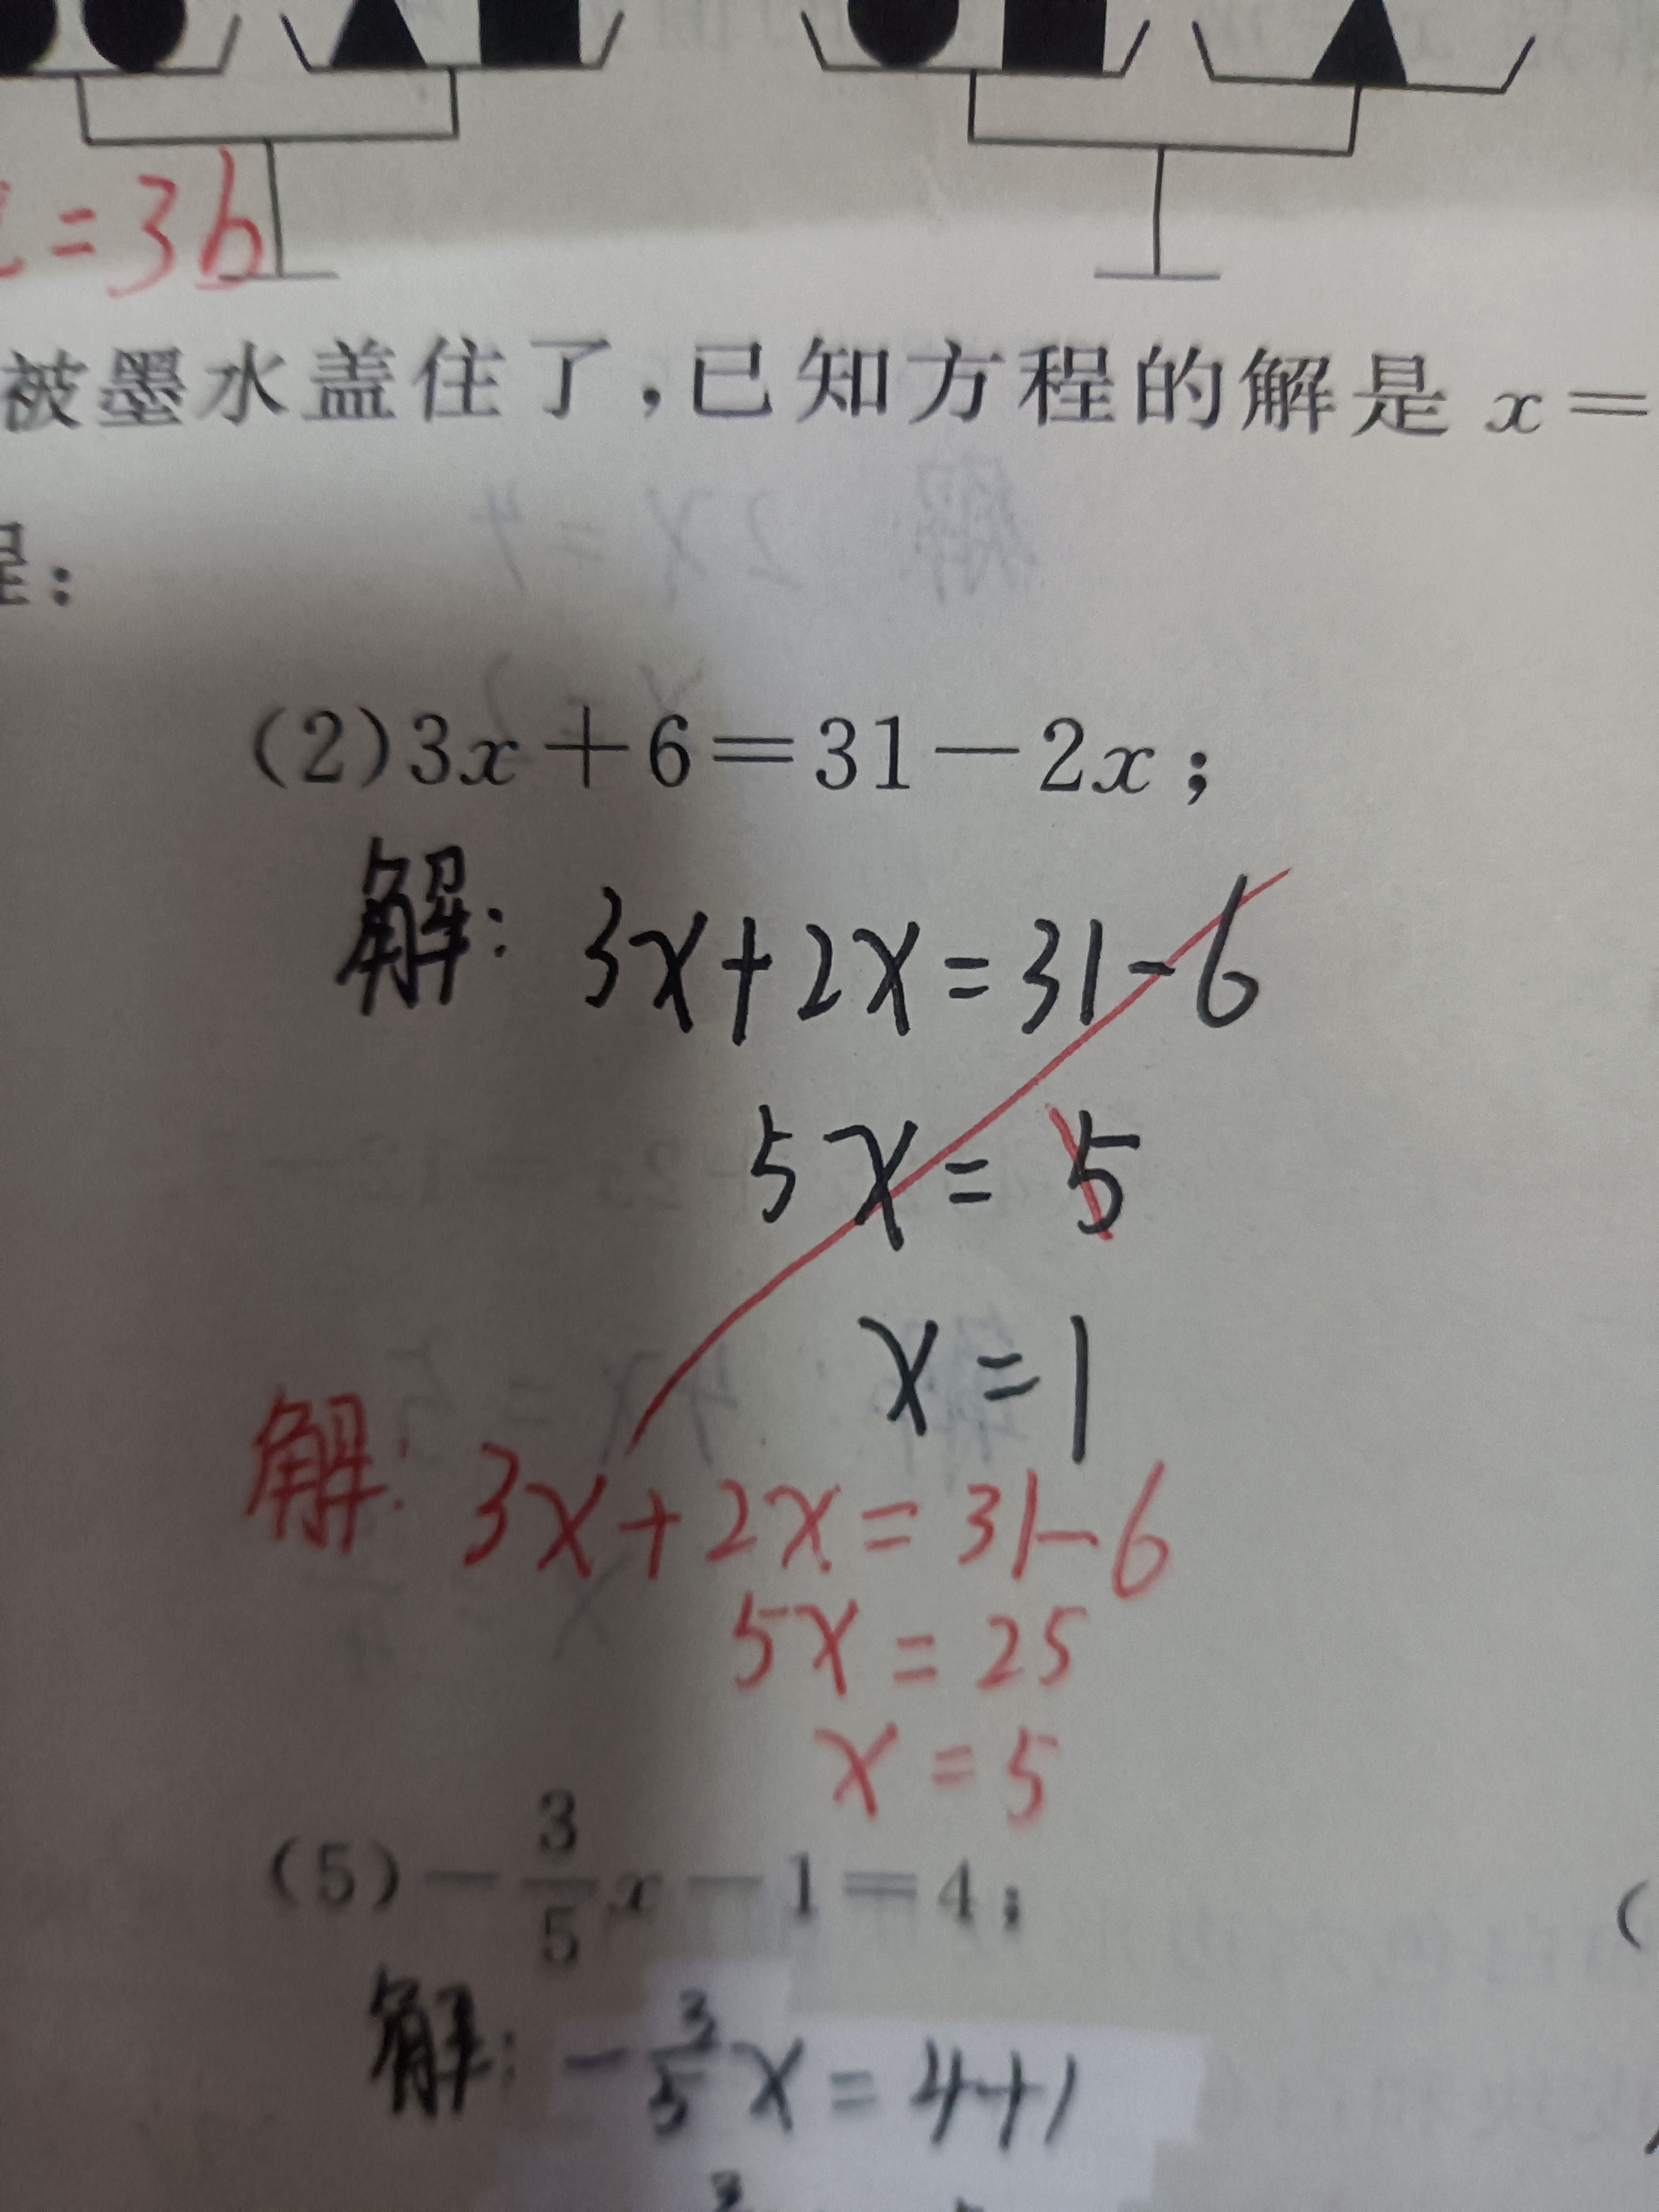 =3b
被墨水盖住了,已知方程的解是 x=
程:
(2)3x+6=31-2x;
解: 3x+2x=31-6
5x=5
x=1
解: 3x+2x=31-6
5x=25
x=5
(5)-3/5x-1=4;
(
解: -3/5x=4+1